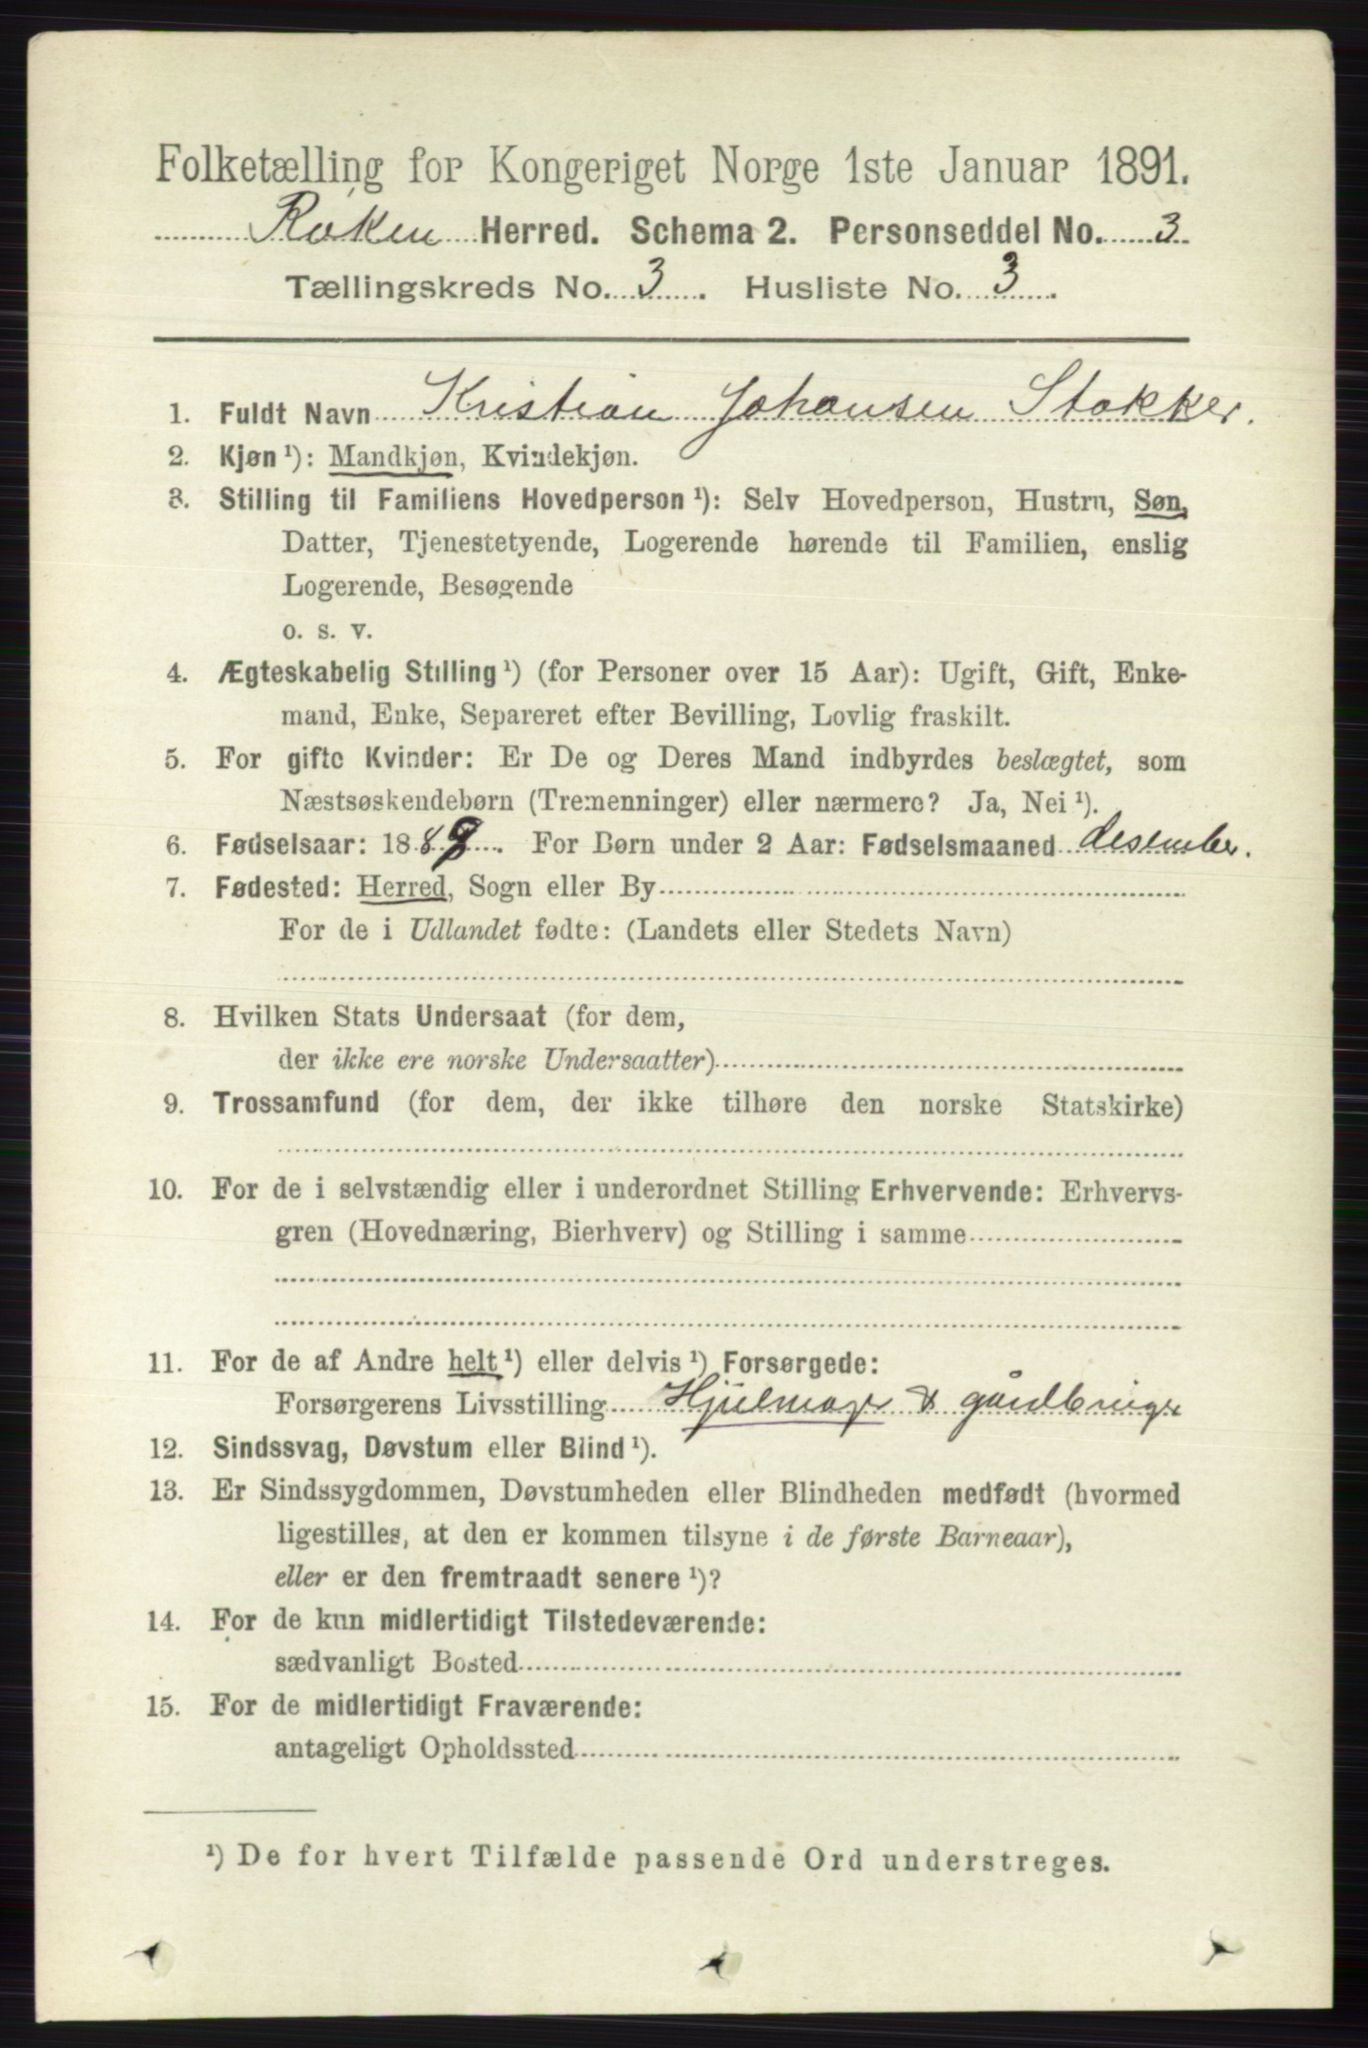 Folketælling for Kongeriget Norge 1ste Januar 1891.
Røken Herred. Schema 2. Personseddel No. 3
Tællingskreds No. 3. Husliste No. 3.
1. Fuldt Navn Kristian Johansen Stokker.
2. Kjøn ¹): Mandkjøn, Kvindekjøn.
3. Stilling til Familiens Hovedperson ¹): Selv Hovedperson, Hustru, Søn,
Datter, Tjenestetyende, Logerende hørende til Familien, enslig
Logerende, Besøgende
o. s. v.
4. Ægteskabelig Stilling ¹) (for Personer over 15 Aar): Ugift, Gift, Enke-
mand, Enke, Separeret efter Bevilling, Lovlig fraskilt.
5. For gifte Kvinder: Er De og Deres Mand indbyrdes beslægtet, som
Næstsøskendebørn (Tremenninger) eller nærmere? Ja, Nei ¹).
6. Fødselsaar: 1889. For Børn under 2 Aar: Fødselsmaaned desember.
7. Fødested: Herred, Sogn eller By
For de i Udlandet fødte: (Landets eller Stedets Navn)
8. Hvilken Stats Undersaat (for dem,
der ikke ere norske Undersaatter)
9. Trossamfund (for dem, der ikke tilhøre den norske Statskirke)
10. For de i selvstændig eller i underordnet Stilling Erhvervende: Erhvervs-
gren (Hovednæring, Bierhverv) og Stilling i samme
11. For de af Andre helt ¹) eller delvis ¹) Forsørgede:
Forsørgerens Livsstilling Hjulmager & gårdbruger
12. Sindssvag, Døvstum eller Blind ¹).
13. Er Sindssygdommen, Døvstumheden eller Blindheden medfødt (hvormed
ligestilles, at den er kommen tilsyne i de første Barneaar),
eller er den fremtraadt senere ¹)?
14. For de kun midlertidigt Tilstedeværende:
sædvanligt Bosted
15. For de midlertidigt Fraværende:
antageligt Opholdssted
¹) De for hvert Tilfælde passende Ord understreges.